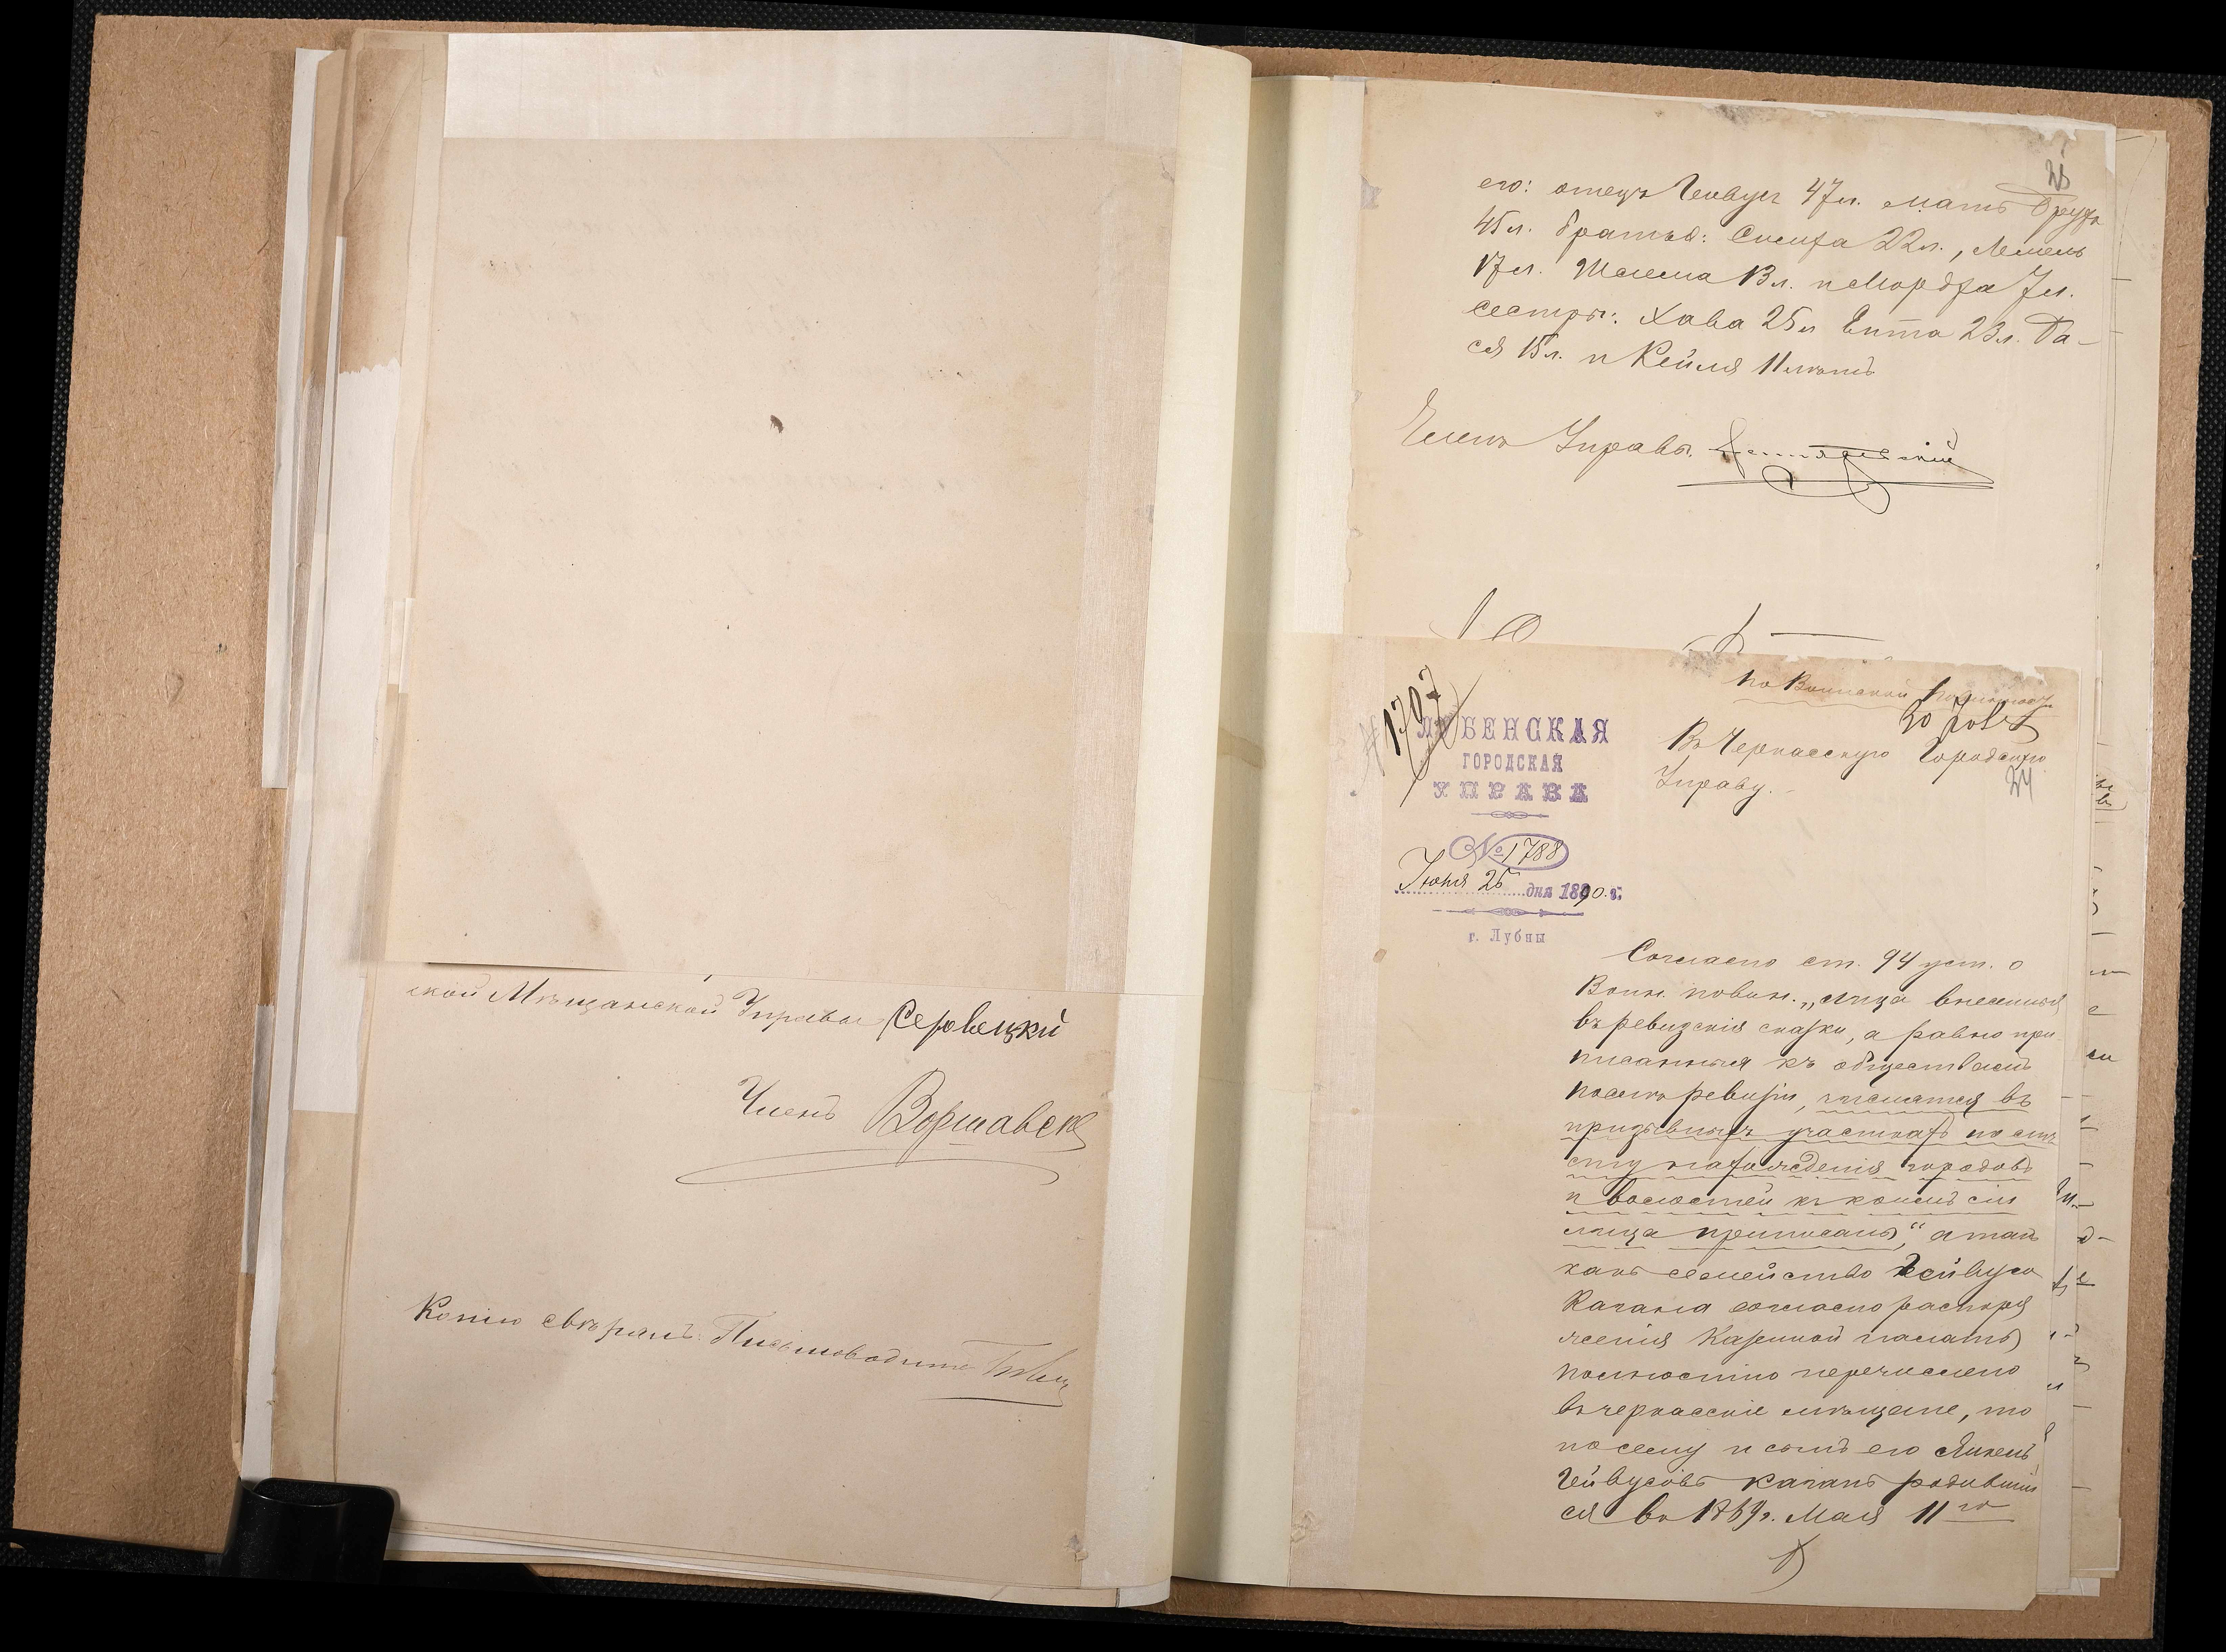 ской Мѣщанской Управы Серовецкій
Членъ Воршавск
Копію свѣрялъ: Письмоводите
его: отецъ Гейвусъ 47 л. мать
45 л. братья: 22 л., Лемель
17 л. 13 л. и Мордха 7 л.
сестры: Хава 25 л Ента 23 л. Ба-
ся 15 л. и Кейля 11 лѣтъ
Членъ Управы
25
По Воинской повинност
№ 1707
20 24
ЛУБЕНСКАЯ
ГОРОДСКАЯ
УПРАВА
№ 1788
Іюня 25 дня 1890 г.
г. Лубны
Въ Черкасскую Городскую
Управу.
Согласно ст. 94 уст. о
Воин. повин. „лица внесенныя
въ ревизскія сказки, а равно при
писанныя къ обществамъ
послѣ ревизіи, числятся въ
призывныхъ участкахъ по мѣ
сту нахожденія городовъ
и волостей къ коимъ сіи
лица приписаны," а такъ
какъ семейство Гейвуса
Кагана согласно распоря
женія Казенной палаты
полностію перечислено
въ черкасскіе мѣщане, то
посему и сынъ его Янкель
Гейвусовъ Каганъ родивший
ся въ 1869 г. Мая 11го